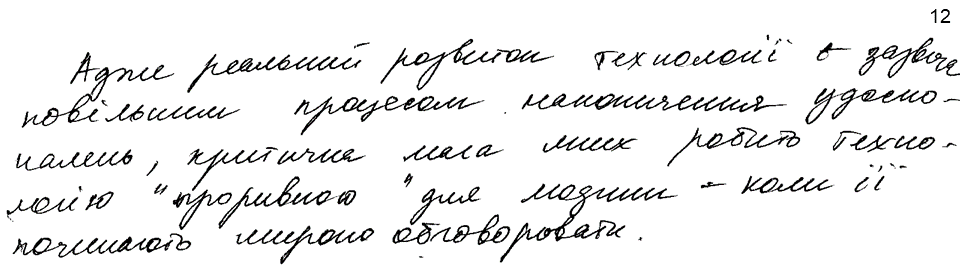 12
Адже реальний розвиток технології є зазвичай
повільним процесом накопичення удоско-
налень, критична маса яких робить техно-
логію "проривною" для людини - коли її
починають широко обговорювати.